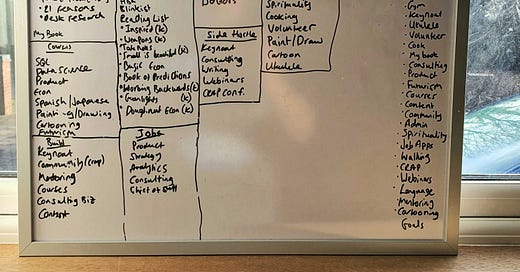 • PI reasons
• Desk research
My Book
Courses
SQL
Data Science
Product
Econ
Spanish/Japanese
Paint/Drawing
Cartooning
Futurism
Build
Keynoat
Community (crap)
Mentoring
Courses
Consulting Biz
Content
Blinkist
Reading List
• Inspired (k)
• Weapons (k)
• Small is beautiful (k)
• Basic Econ
• Book of Predictions
• Working Backwards (k)
(k)
• Doughnut Econ (k)
Jobs
Product
Strategy
Analytics
Consulting
Chief of Staff
Side Hustle
Keynoat
Consulting
Writing
Webinars
CRAP Conf.
Spirituality
Cooking
Volunteer
Paint/Draw
Cartoon
Ukulele
• Gym
• Keynoat
• Ukulele
• Volunteer
• Cook
• My book
• Consulting
• Product
• Futurism
• Courses
• Content
• Community
• Admin
• Spirituality
• Job Apps
• Walking
• CRAP
• Webinars
• Language
• Mentoring
• Cartooning
Goals